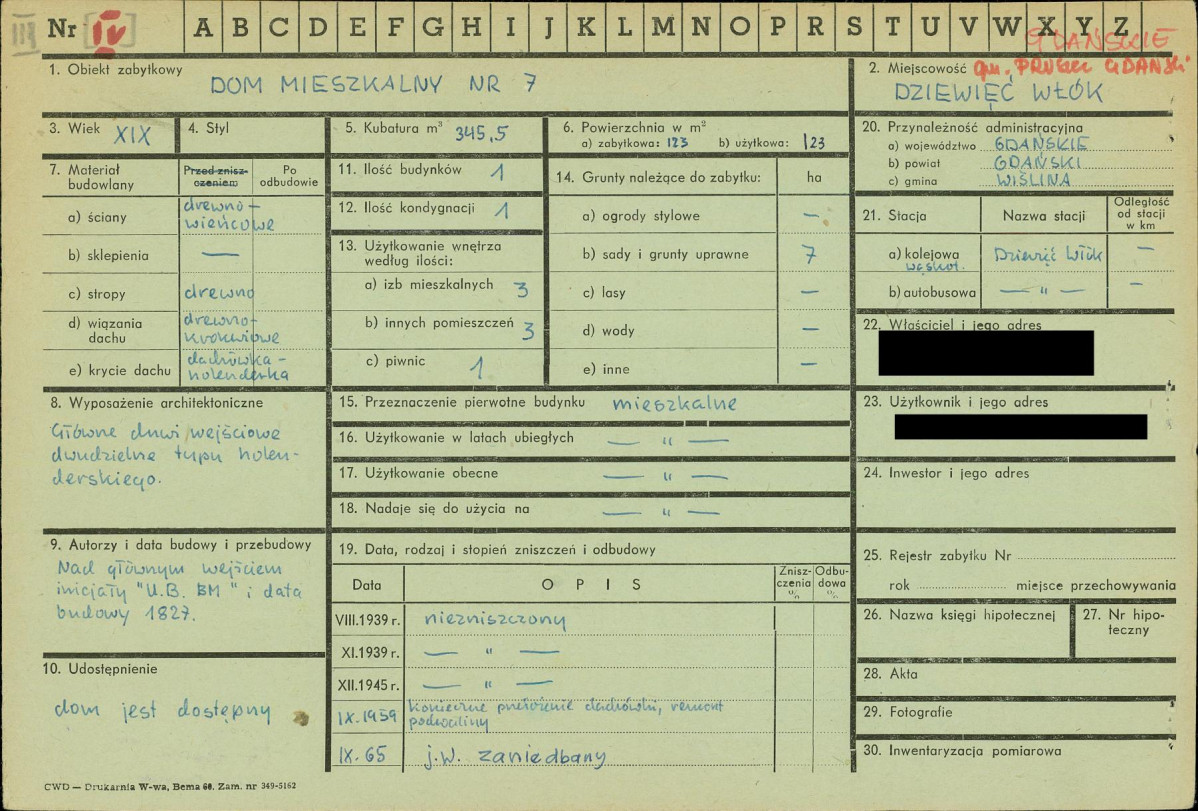 III
Nr IV A B C D E F G H I J K L M N O P R S T U V W X Y Z
GDAŃSKIE
gm. PRUSZCZ GDAŃSKI
1. Obiekt zabytkowy
DOM MIESZKALNY NR 7
2. Miejscowość
DZIEWIĘĆ WŁÓK
3. Wiek XIX
4. Styl
5. Kubatura m³ 345,5
6. Powierzchnia w m²
a) zabytkowa: 123 b) użytkowa: 123
7. Materiał budowlany
Przed znisz-
czeniem
Po
odbudowie
a) ściany
drewno-
wieńcowe
b) sklepienia —
c) stropy drewno
d) wiązania
dachu
drewno-
krokwiowe
e) krycie dachu
dachówka-
holenderka
8. Wyposażenie architektoniczne
Główne drzwi wejściowe
dwudzielne typu holen-
derskiego.
9. Autorzy i data budowy i przebudowy
Nad głównym wejściem
inicjały "U.B. BM" i data
budowy 1827.
10. Udostępnienie
dom jest dostępny
11. Ilość budynków 1
12. Ilość kondygnacji 1
13. Użytkowanie wnętrza
według ilości:
a) izb mieszkalnych 3
b) innych pomieszczeń 3
c) piwnic 1
14. Grunty należące do zabytku: ha
a) ogrody stylowe —
b) sady i grunty uprawne 7
c) lasy —
d) wody —
e) inne —
15. Przeznaczenie pierwotne budynku mieszkalne
16. Użytkowanie w latach ubiegłych — " —
17. Użytkowanie obecne — " —
18. Nadaje się do użycia na — " —
19. Data, rodzaj i stopień zniszczeń i odbudowy
Data OPIS
Znisz-
czenia
%
Odbu-
dowa
%
VIII.1939 r. niezniszczony
XI.1939 r. — " —
XII.1945 r. — " —
IX.1959 konieczne przełożenie dachówki, remont
podwaliny
IX.65 j.w. zaniedbany
20. Przynależność administracyjna
a) województwo GDAŃSKIE
b) powiat GDAŃSKI
c) gmina WIŚLINA
21. Stacja
Nazwa stacji
Odległość
od stacji
w km
a) kolejowa Dziewięć Włók —
wąskot.
b) autobusowa — " — —
22. Właściciel i jego adres
23. Użytkownik i jego adres
24. Inwestor i jego adres
25. Rejestr zabytku Nr
rok miejsce przechowywania
26. Nazwa księgi hipotecznej
27. Nr hipo-
teczny
28. Akta
29. Fotografie
30. Inwentaryzacja pomiarowa
CWD — Drukarnia W-wa, Bema 60. Zam. nr 349-5162